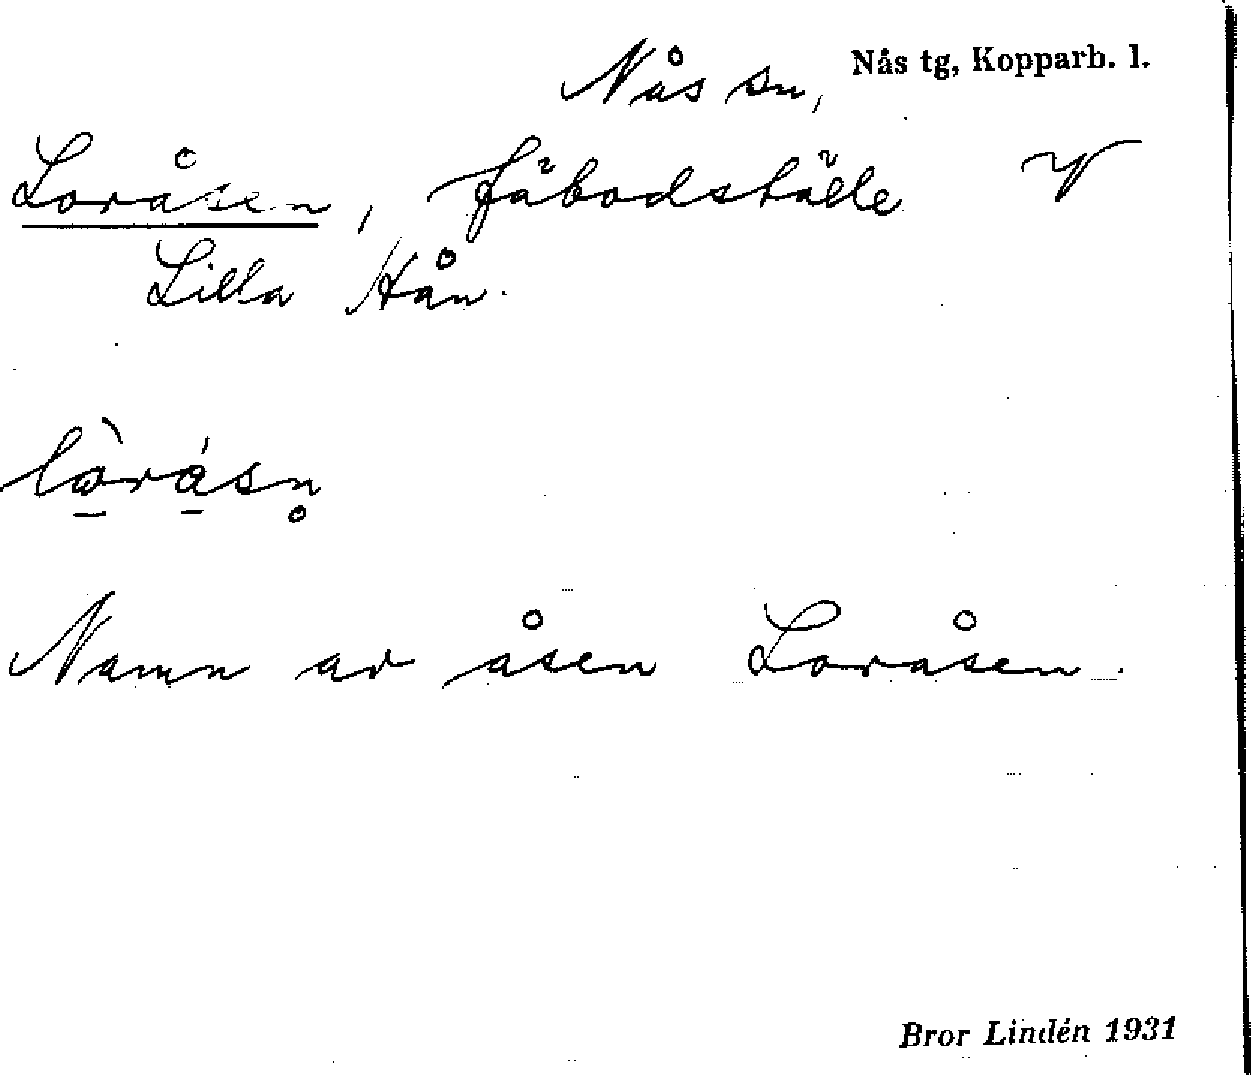 Nås sn, Nås tg, Kopparb. l.
Loråsen, fäbodställe V
Lilla Hån.
lò̱rásn̥
Namn av åsen Loråsen.
Bror Lindén 1931